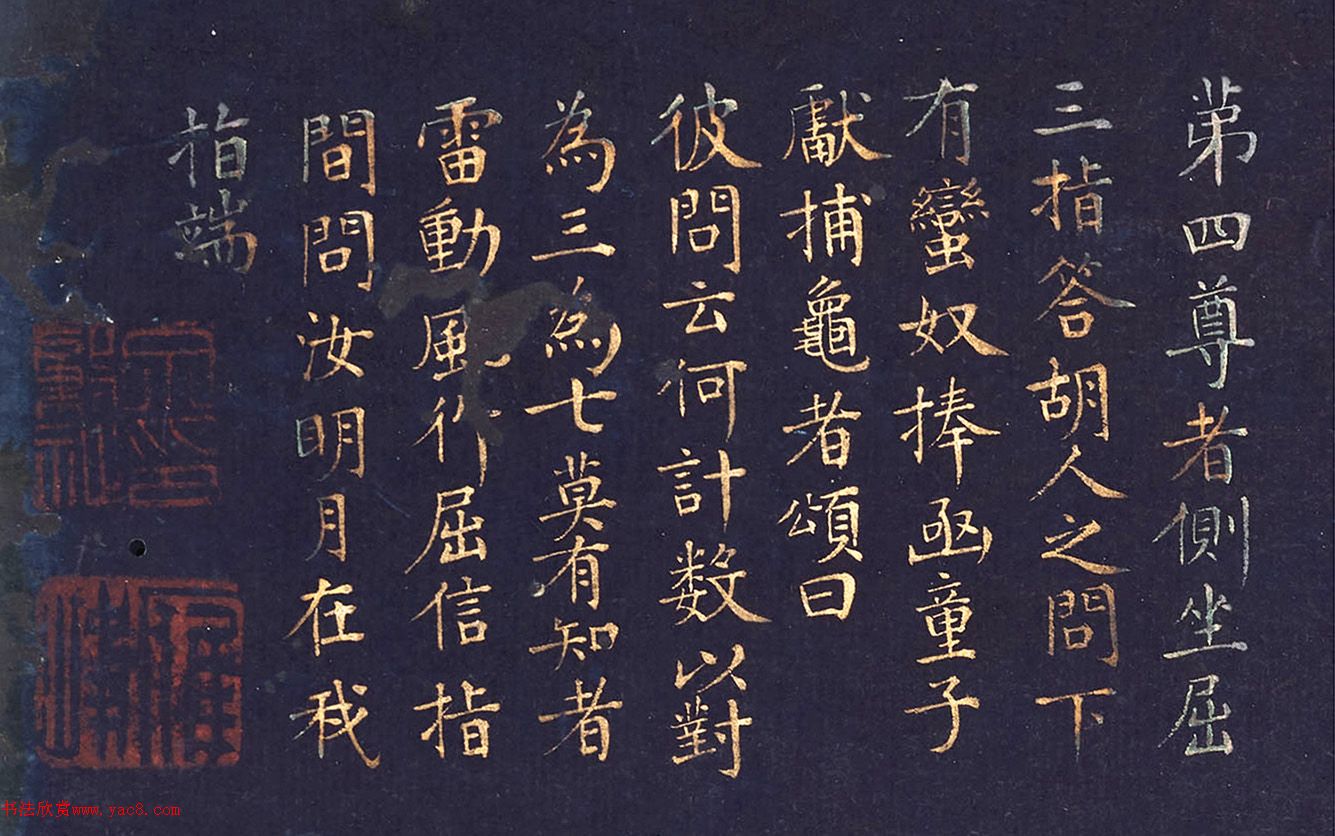 苐四尊者側坐屈
三指答胡人之問下
有蠻奴捧函童子
獻捕龜者頌曰
彼問云何計数以對
為三為七莫有知者
雷動風行屈信指
間問汝明月在我
指端
书法欣赏www.yac8.com